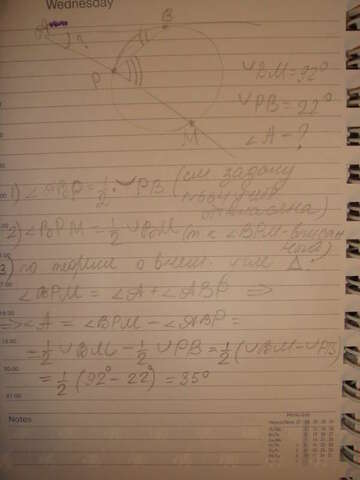 Wednesday
B
A
?
P
M
◡BM = 92°
◡PB = 22°
∠A - ?
1) ∠ABP = 1/2 ◡PB (см. задачу
2) ∠BPM = 1/2 ◡BM (т.к ∠BPM - вписан
3) по теореме о внеш. угле Δ.
∠BPM = ∠A + ∠ABP ⇒
⇒ ∠A = ∠BPM - ∠ABP =
= 1/2 ◡BM - 1/2 ◡PB = 1/2 (◡BM - ◡PB)
= 1/2 (92° - 22°) = 35°
Notes